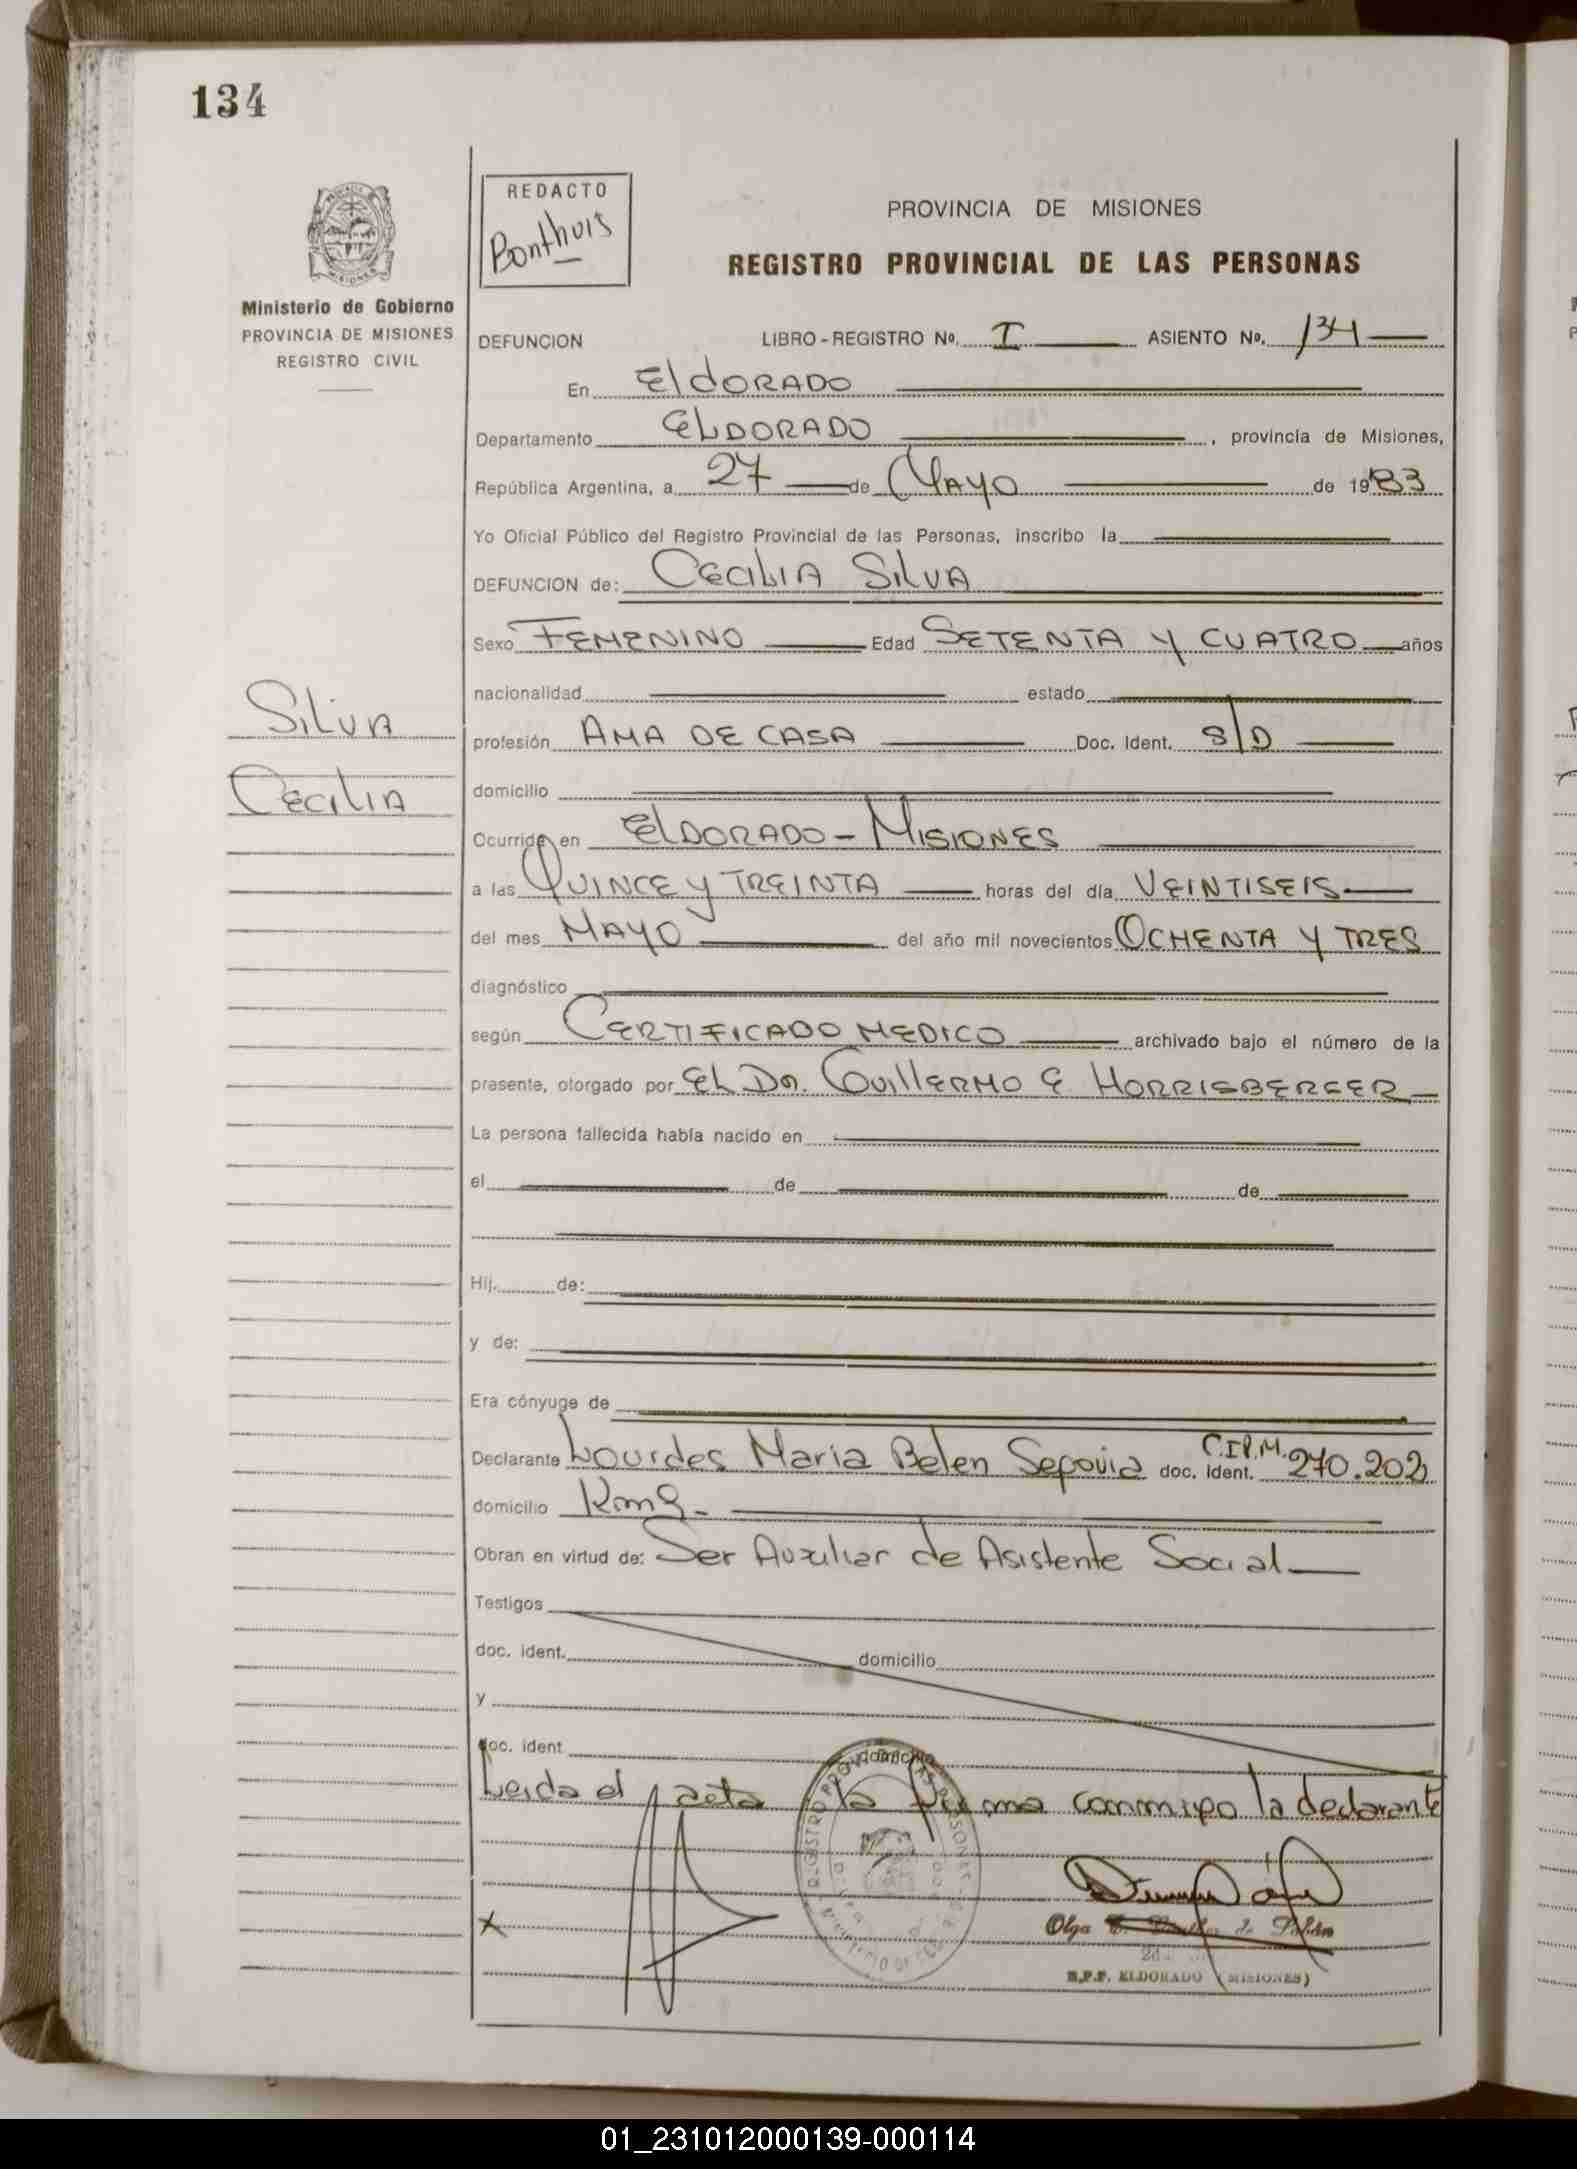 134
REDACTO
Bonthuis
Ministerio de Gobierno
PROVINCIA DE MISIONES
REGISTRO CIVIL
PROVINCIA DE MISIONES
REGISTRO PROVINCIAL DE LAS PERSONAS
DEFUNCION LIBRO-REGISTRO No. I ASIENTO No. 134
En ElDORADO
Departamento ELDORADO, provincia de Misiones,
República Argentina, a 27 de MAYO de 1983
Yo Oficial Público del Registro Provincial de las Personas, inscribo la
DEFUNCION de: CECILIA SILVA
Sexo FEMENINO Edad SETENTA Y CUATRO años
nacionalidad estado
SILVA
profesión AMA DE CASA Doc. Ident. S/D
CECILIA
domicilio
Ocurrida en ELDORADO - MISIONES
a las QUINCE Y TREINTA horas del día VEINTISEIS
del mes MAYO del año mil novecientos OCHENTA Y TRES
diagnóstico
según CERTIFICADO MEDICO archivado bajo el número de la
presente, otorgado por EL DR. GUILLERMO E HORRISBERGER
La persona fallecida había nacido en
el de de
Hij. de:
y de:
Era cónyuge de
Declarante Lourdes Maria Belen Segovia doc. ident. C.I.P.M. 270.202
domicilio Km 9.
Obran en virtud de: Ser Auxiliar de Asistente Social
Testigos
doc. ident. domicilio
y
doc. ident domicilio
Leida el acta la firma conmigo la declarante
x
Olga
R.P.P. ELDORADO (MISIONES)
01_231012000139-000114